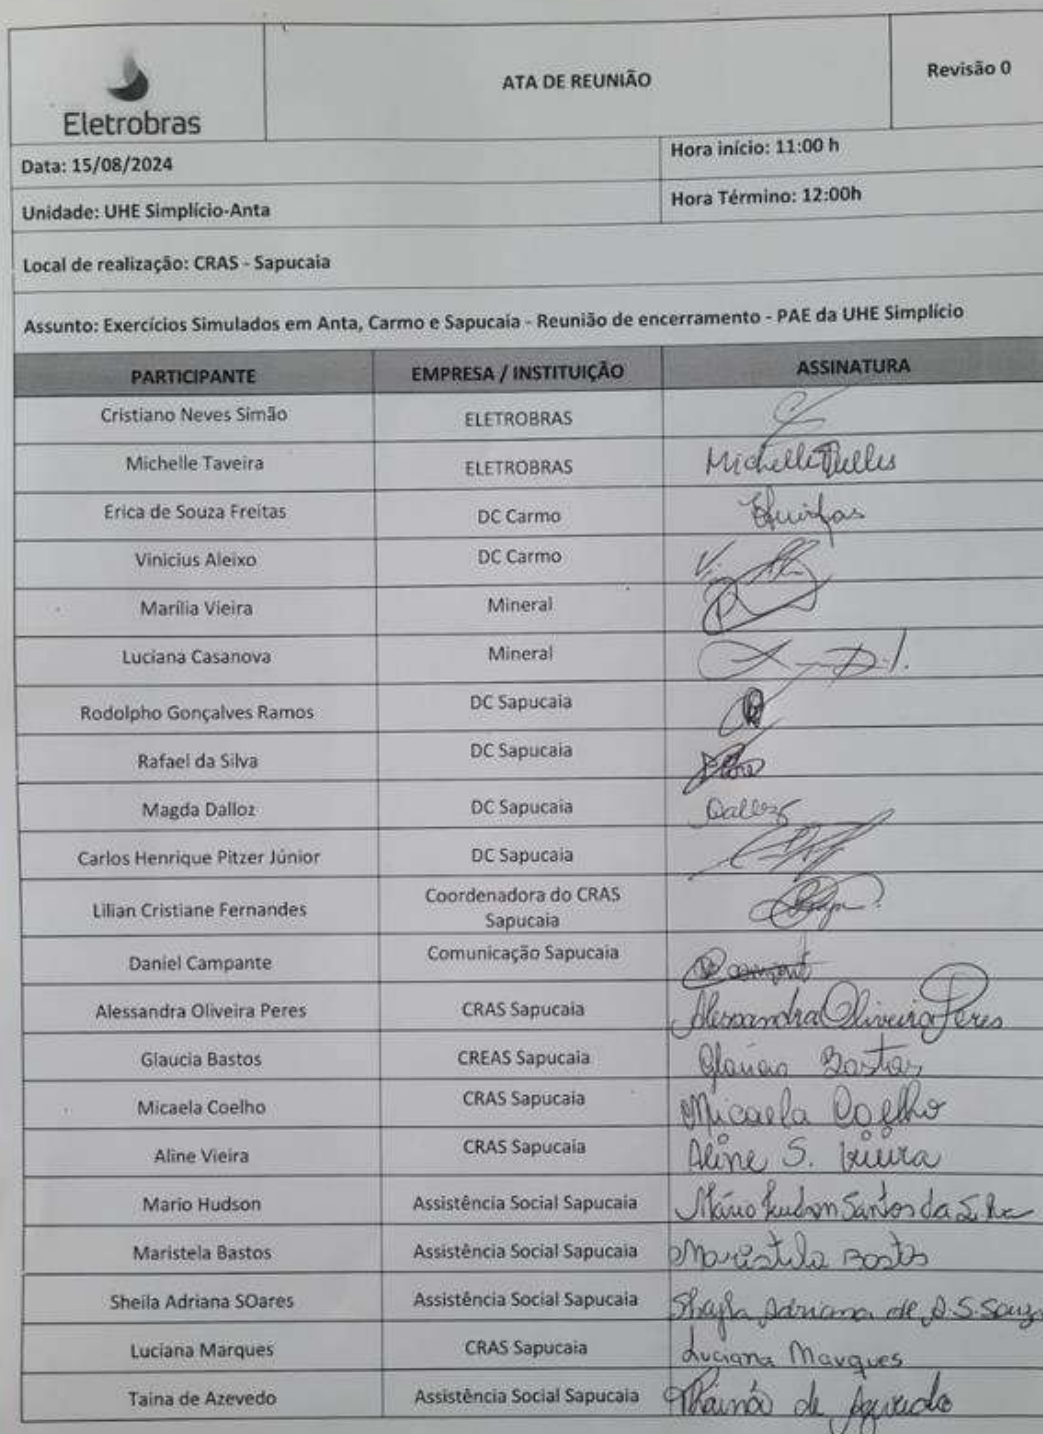 Eletrobras
ATA DE REUNIÃO
Revisão 0
Data: 15/08/2024
Hora início: 11:00 h
Unidade: UHE Simplício-Anta
Hora Término: 12:00h
Local de realização: CRAS - Sapucaia
Assunto: Exercícios Simulados em Anta, Carmo e Sapucaia - Reunião de encerramento - PAE da UHE Simplício
PARTICIPANTE EMPRESA / INSTITUIÇÃO ASSINATURA
Cristiano Neves Simão ELETROBRAS
Michelle Taveira ELETROBRAS Michelle Telles
Erica de Souza Freitas DC Carmo
Vinicius Aleixo DC Carmo
Marília Vieira Mineral
Luciana Casanova Mineral
Rodolpho Gonçalves Ramos DC Sapucaia
Rafael da Silva DC Sapucaia
Magda Dalloz DC Sapucaia Dalloz
Carlos Henrique Pitzer Júnior DC Sapucaia
Lilian Cristiane Fernandes Coordenadora do CRAS
Sapucaia
Daniel Campante Comunicação Sapucaia
Alessandra Oliveira Peres CRAS Sapucaia Alessandra Oliveira Peres
Glaucia Bastos CREAS Sapucaia Glaucia Bastos
Micaela Coelho CRAS Sapucaia Micaela Coelho
Aline Vieira CRAS Sapucaia Aline S. Vieira
Mario Hudson Assistência Social Sapucaia Mário Hudson Santos da Silva
Maristela Bastos Assistência Social Sapucaia Maristela Bastos
Sheila Adriana SOares Assistência Social Sapucaia Adriana de S. Souza
Luciana Marques CRAS Sapucaia Luciana Marques
Taina de Azevedo Assistência Social Sapucaia Thainá de Azevedo